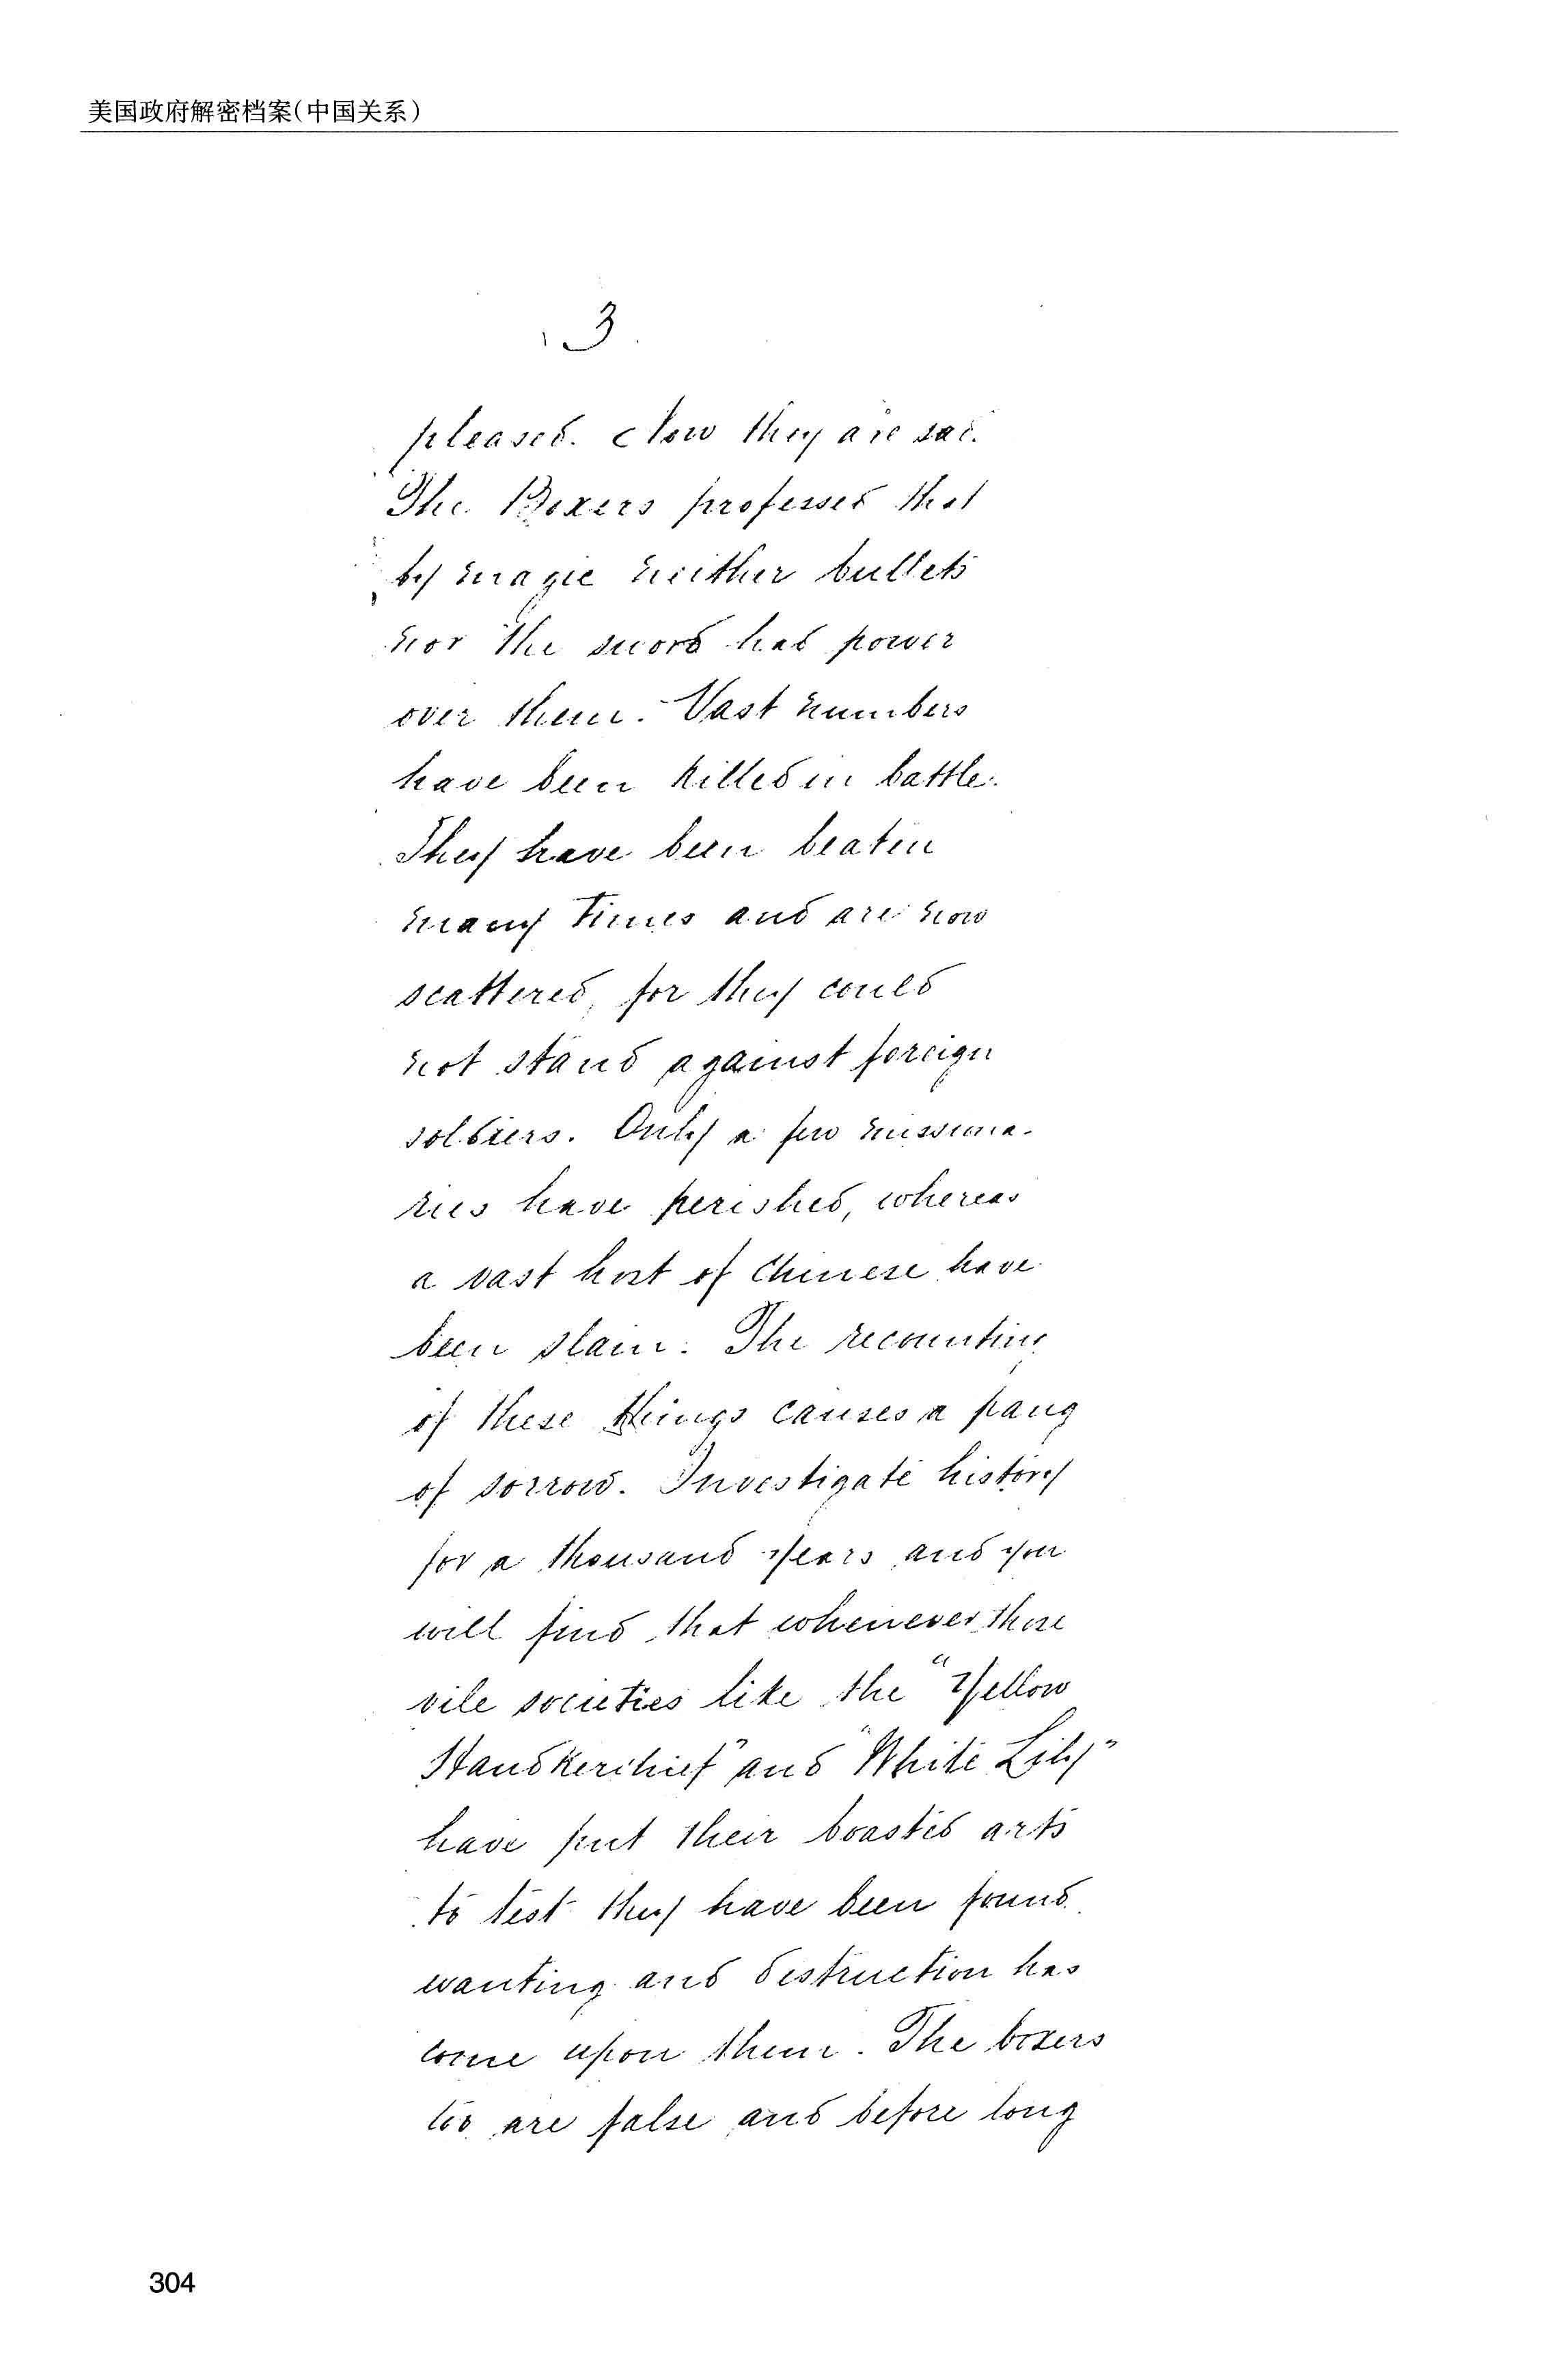 美国政府解密档案(中国关系)
3.
pleased. Now they are sad.
The Boxers professed that
by magic neither bullets
nor the sword had power
over them. Vast numbers
have been killed in battle.
They have been beaten
many times and are now
scattered, for they could
not stand against foreign
soldiers. Only a few missiona-
ries have perished, whereas
a vast host of Chinese have
been slain. The recounting
of these things causes a pang
of sorrow. Investigate history
for a thousand years and you
will find that whenever those
vile societies like the "Yellow
Handkerchief" and "White Lily"
have put their boasted arts
to test they have been found
wanting and destruction has
come upon them. The boxers
too are false and before long
304